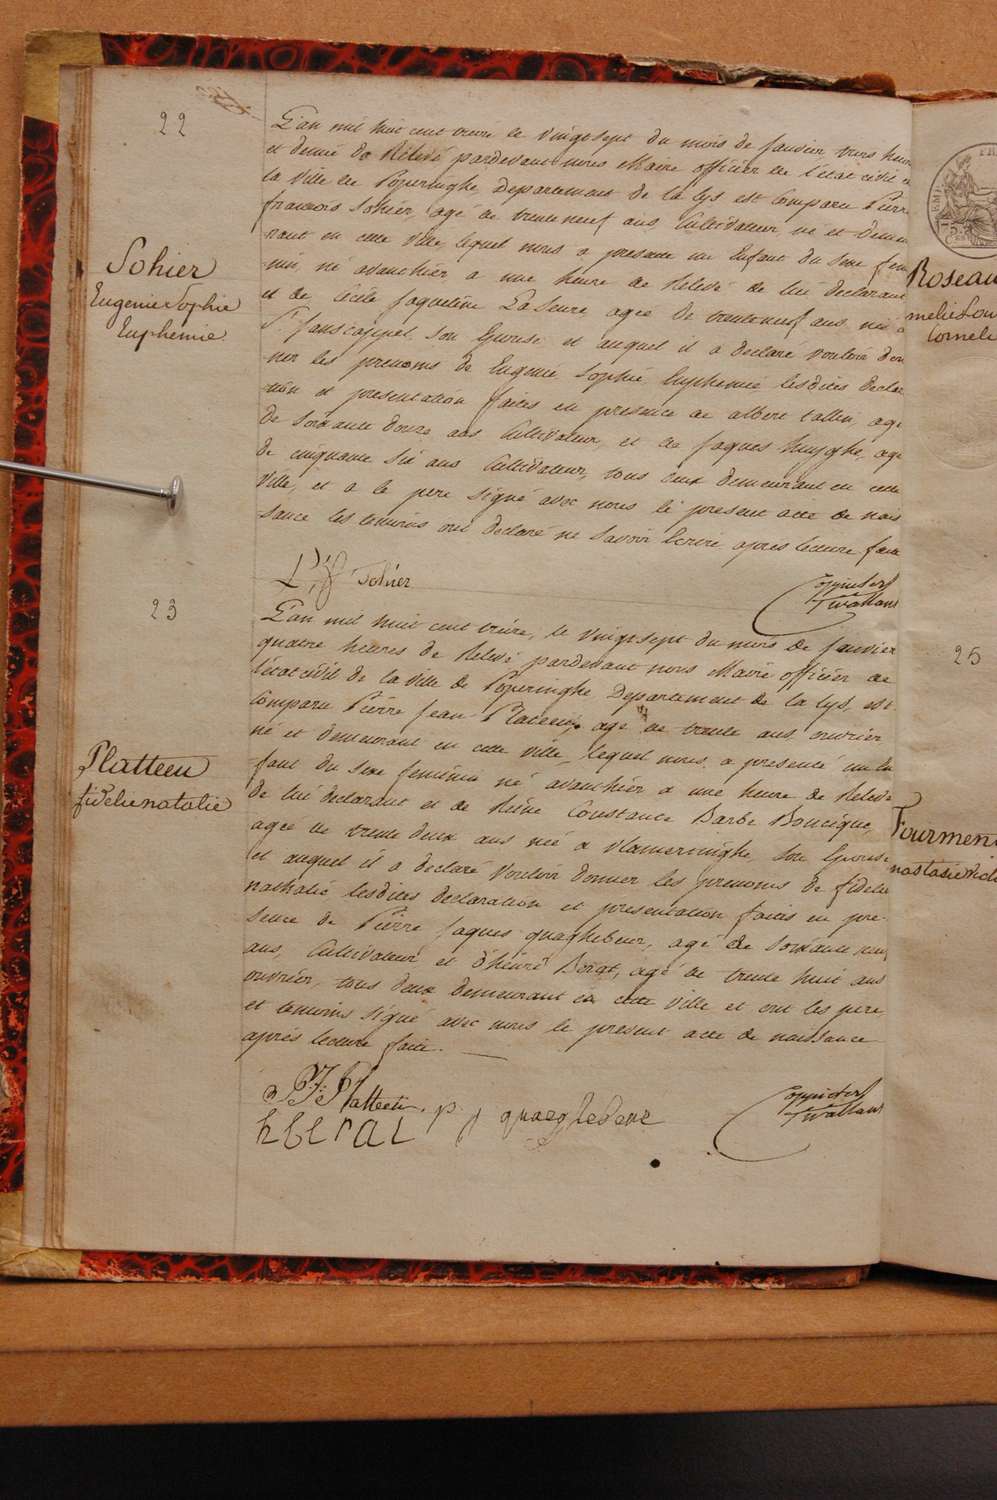 22
Sohier
Eugenie Sophie
Euphemie
L'an mil huit cent treize le vingt sept du mois de Janvier, trois heures
et demie de Relevé pardevant nous Maire officier de l'état civil de
la Ville de Poperinghe Departement de la Lys est Comparu Pierre
francois Sohier, agé de trente neuf ans, Cultivateur, né et demeu
rant en cette ville, lequel nous a presenté un Enfant du sexe fem
nin, né avanthier a une heure de Relevé de lui declarant
et de Cécile Jaqueline LaSeure agée de trenteneuf ans née a
St Janscappel son Epouse et auquel il a declaré vouloir don
ner les prenoms de Eugenie Sophie Euphemie lesdites declar
tion et presentation faites en presence de albert tallin, agé
de soixante douze ans Cultivateur, et de Jaques huyghe, agé
de cinquante six ans Cultivateur, tous deux demeurant en cette
Ville, et a le pere signé avec nous le present acte de nais
sance les temoins ont declaré ne savoir Ecrire après lecture faite
P:f Sohier
23
Platteeu
fidelie natalie
L'an mil huit cent treize, le vingt sept du mois de Janvier
quatre heures de Relevé pardevant nous Maire officier de
l'état civil de la Ville de Poperinghe Departement de la Lys, est
Comparu Pierre Jean Platteeu, agé de trente ans, ouvrier
né et demeurant en cette ville, lequel nous a presenté un En
fant du sexe feminin né avanthier a une heure de Relevé
de lui declarant et de Reine Constance Barbe Boucique,
agée de trente deux ans née a vlamertinghe, son Epouse
et auquel il a declaré vouloir donner les prenoms de fidelie
nathalie lesdites declaration et presentation faites en pre-
sence de Pierre Jaques quaghebeur, agé de soixante neuf
ans, Cultivateur et d'henri Borat, agé de trente huit ans
ouvrier, tous deux demeurant en cette ville et ont les pere
et temoins signé avec nous le present acte de naissance
après lecture faite.
PJ Platteeu. p j quaeghebeur
Roseau
melie Lou
Corneli
25
Fourmen
nastasie Vict